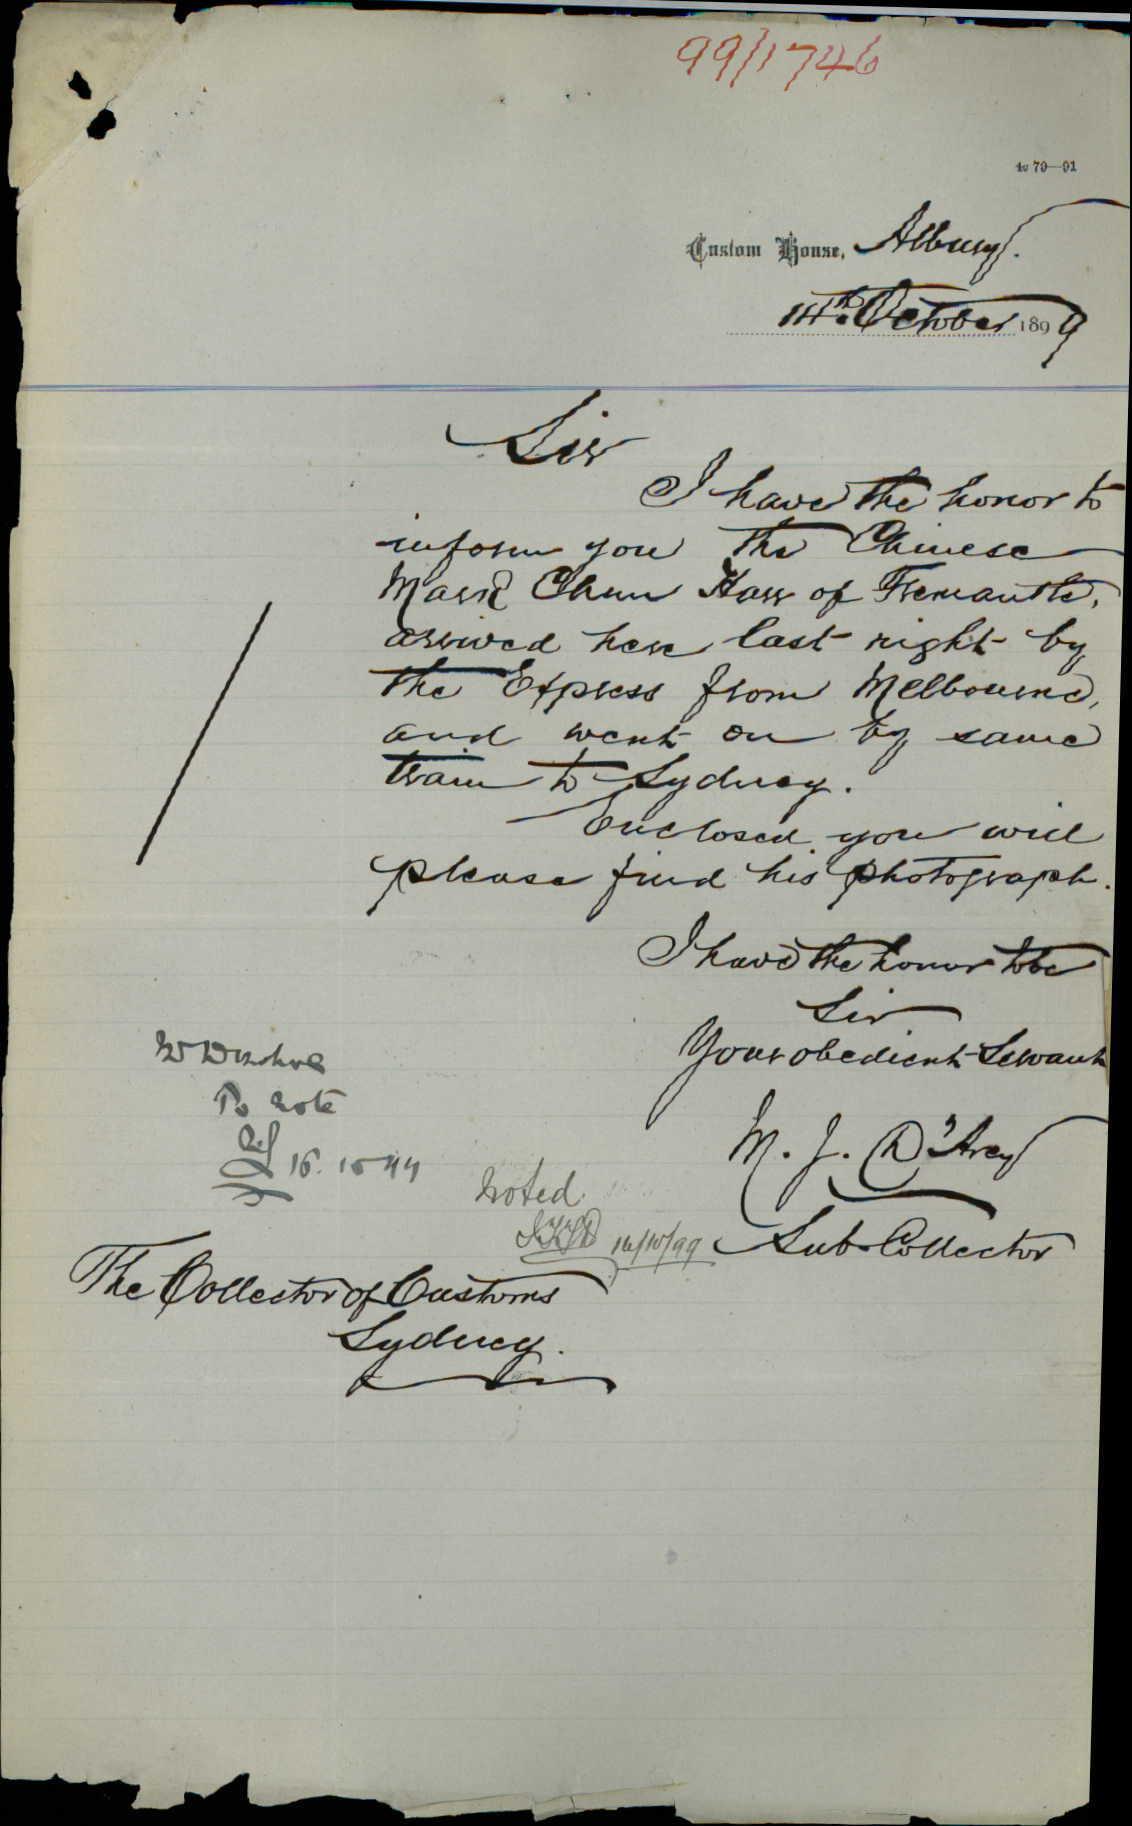 99/1746
4c 79—91
Custom House, Albury.
14th October 1899
Sir
I have the honor to
inform you the Chinese
Mark Chum Hass of Fremantle,
arrived here last night by
the Express from Melbourne,
and went on by same
train to Sydney.
Enclosed you will
please find his photograph.
I have the honor to be
Sir
Your obedient Servant
M. J. D'Arcy
Sub-Collector
To note
16.10.99
Noted
16/10/99
The Collector of Customs
Sydney.